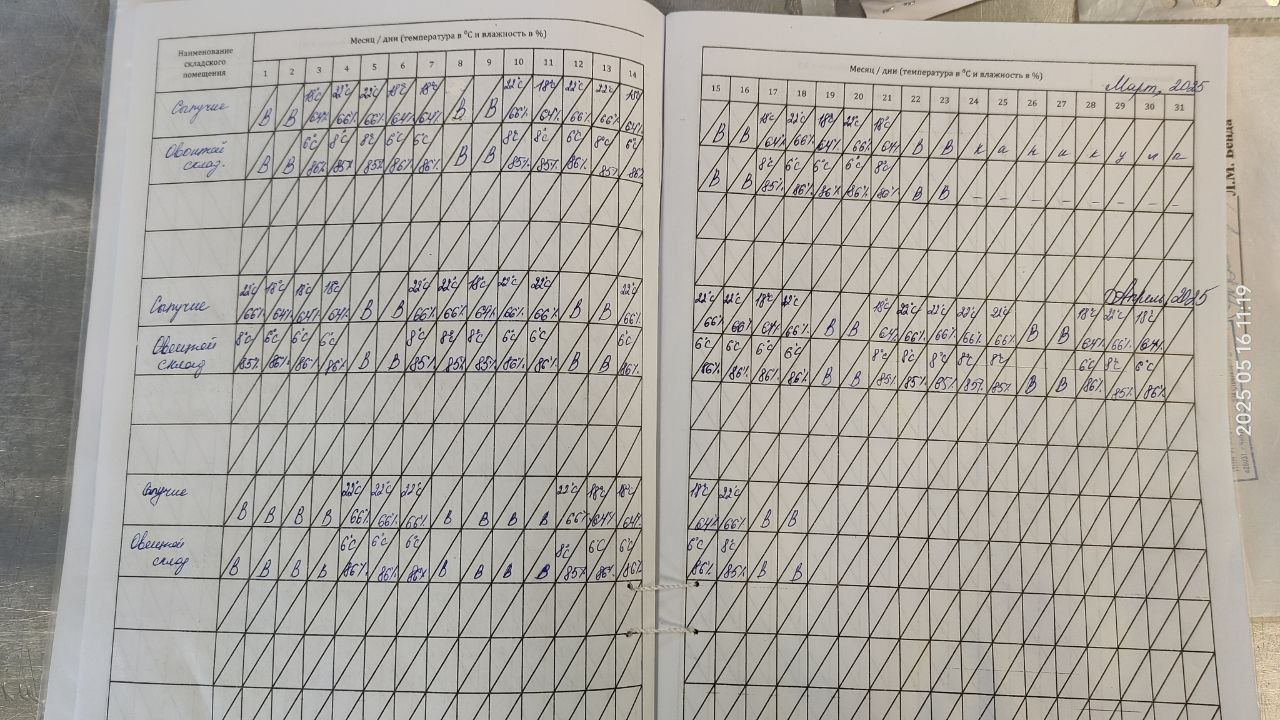 Наименование складского помещения
Месяц / дни (температура в °С и влажность в %)
1 2 3 4 5 6 7 8 9 10 11 12 13 14
Сыпучие В В 18°С 64% 22°С 66% 22°С 66% 18°С 64% 18°С 64% В В 22°С 66% 18°С 64% 22°С 66% 22°С 66% 18°С 64%
Овощной склад. В В 6°С 86% 8°С 85% 8°С 85% 6°С 86% 6°С 86% В В 8°С 85% 8°С 85% 6°С 86% 8°С 85% 6°С 86%
Сыпучие 22°С 66% 18°С 64% 18°С 64% 18°С 64% В В 22°С 66% 22°С 66% 18°С 64% 22°С 66% 22°С 66% В В 22°С 66%
Овощной склад 8°С 85% 6°С 86% 6°С 86% 6°С 86% В В 8°С 85% 8°С 85% 8°С 85% 6°С 86% 6°С 86% В В 6°С 86%
Сыпучие В В В В 22°С 66% 22°С 66% 22°С 66% В В В В 22°С 66% 18°С 64% 18°С 64%
Овощной склад В В В В 6°С 86% 6°С 86% 6°С 86% В В В В 8°С 85% 6°С 86% 6°С 86%
Месяц / дни (температура в °С и влажность в %)
Март, 2025
15 16 17 18 19 20 21 22 23 24 25 26 27 28 29 30 31
В В 18°С 64% 22°С 66% 18°С 64% 22°С 66% 18°С 64% В В к а н и к у л а
В В 8°С 85% 6°С 86% 6°С 86% 6°С 86% 8°С В В – – – – – – – –
Апрель 2025
22°С 66% 22°С 66% 18°С 64% 22°С 66% В В 18°С 64% 22°С 66% 22°С 66% 22°С 66% 22°С 66% В В 18°С 64% 22°С 66% 18°С 64%
6°С 86% 6°С 86% 6°С 86% 6°С 86% В В 8°С 85% 8°С 85% 8°С 85% 8°С 85% 8°С 85% В В 6°С 86% 8°С 85% 6°С 86%
18°С 64% 22°С 66% В В
6°С 86% 8°С 85% В В
Л.М. Венда
2025 05 16 11:19